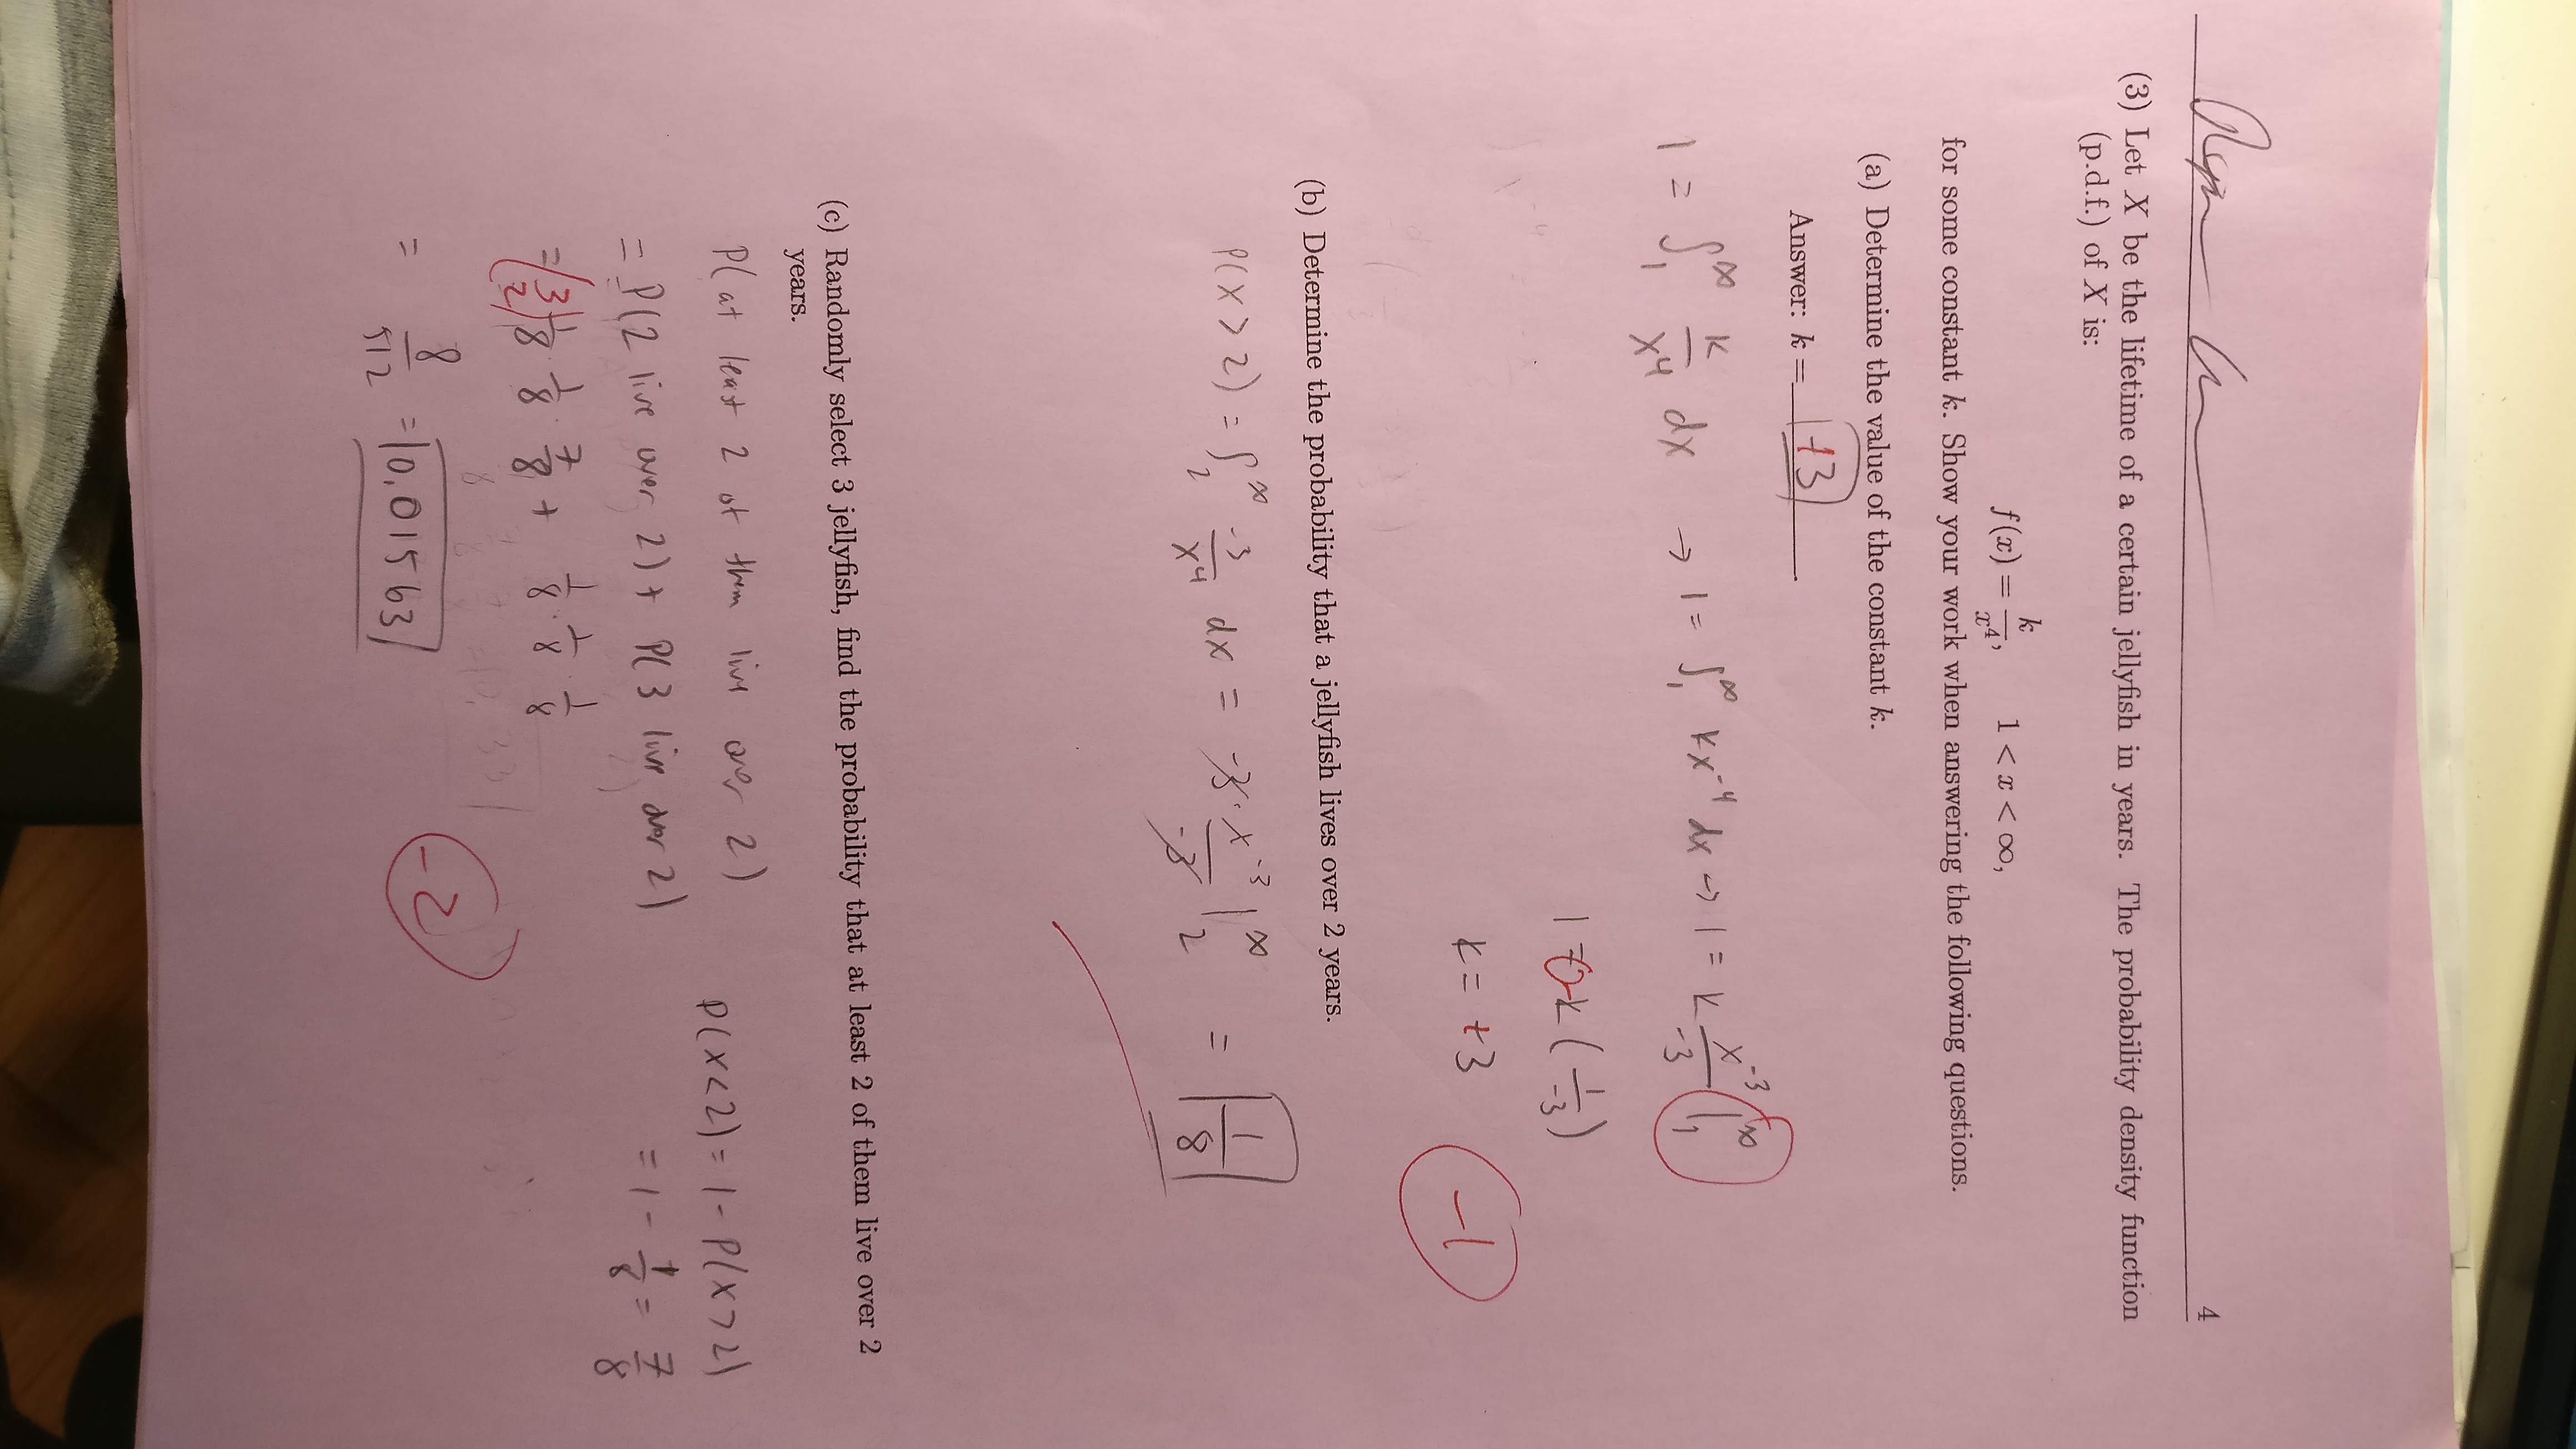 4
(3) Let X be the lifetime of a certain jellyfish in years. The probability density function
(p.d.f.) of X is:
f(x) = k/x^4, 1 < x < ∞,
for some constant k. Show your work when answering the following questions.
(a) Determine the value of the constant k.
Answer: k = +3
1 = ∫_1^∞ k/x^4 dx → 1 = ∫_1^∞ kx^-4 dx → 1 = k x^-3/-3 |_1^∞
k (1/-3)
k = +3
-1
(b) Determine the probability that a jellyfish lives over 2 years.
P(X > 2) = ∫_2^∞ -3/x^4 dx = -3 · x^-3/-3 |_2^∞ = 1/8
(c) Randomly select 3 jellyfish, find the probability that at least 2 of them live over 2
years.
P(at least 2 of them live over 2) P(X < 2) = 1 - P(X > 2)
= P(2 live over 2) + P(3 live over 2) = 1 - 1/8 = 7/8
= (3 2) 1/8 · 1/8 · 7/8 + 1/8 · 1/8 · 1/8
= 8/512 = 0.01563
-2